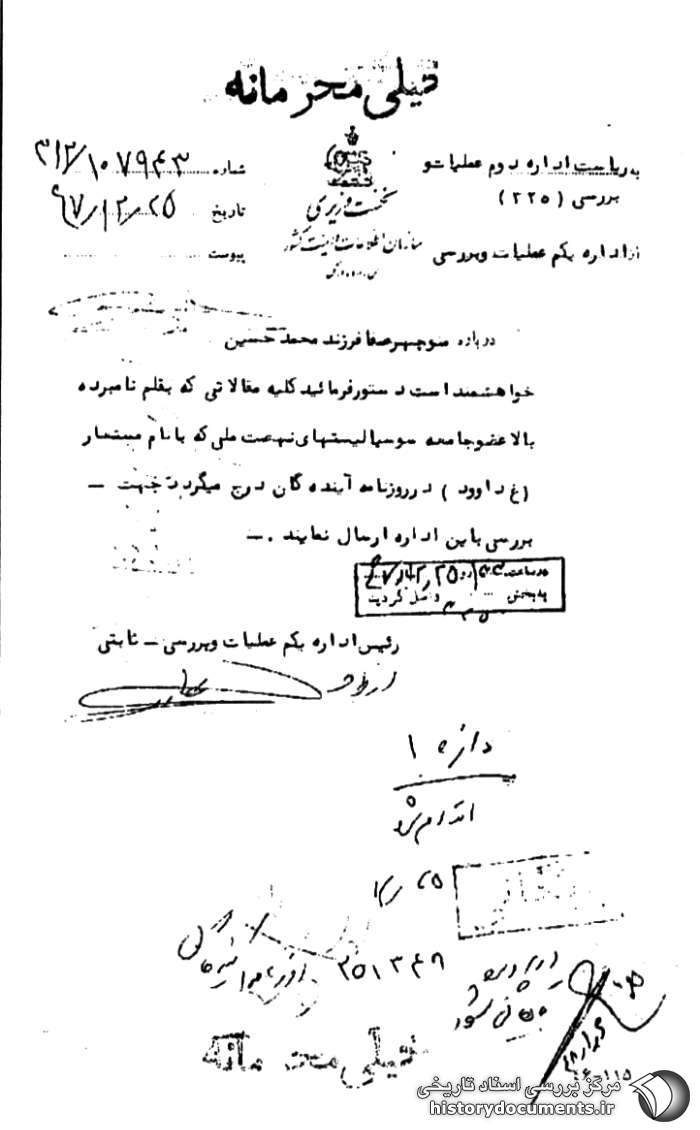 خیلی محرمانه
به ریاست اداره دوم عملیات و
بررسی (۲۲۵)
از اداره یکم عملیات وبررسی
نخست وزیری
سازمان اطلاعات و امنیت کشور
شماره ۳۱۲/۱۰۷۹۴۳
تاریخ ۴۷/۱۲/۲۵
پیوست
درباره منوچهر صفا فرزند محمد حسین
خواهشمند است دستور فرمائید کلیه مقالاتی که بقلم نامبرده
بالا عضو جامعه سوسیالیستهای نهضت ملی که با نام مستعار
(غ داوود) در روزنامه آینده گان درج میگردد جهت –
بررسی باین اداره ارسال نمایند .–
در ساعت ۴۷/۱۲/۲۵
به بخش واصل گردید
رئیس اداره یکم عملیات وبررسی – ثابتی
۱
اقدام شد
۲۵
۳۵۱۳۴۸
در پرونده
بایگانی شود
خیلی محرمانه
مرکز بررسی اسناد تاریخی
historydocuments.ir